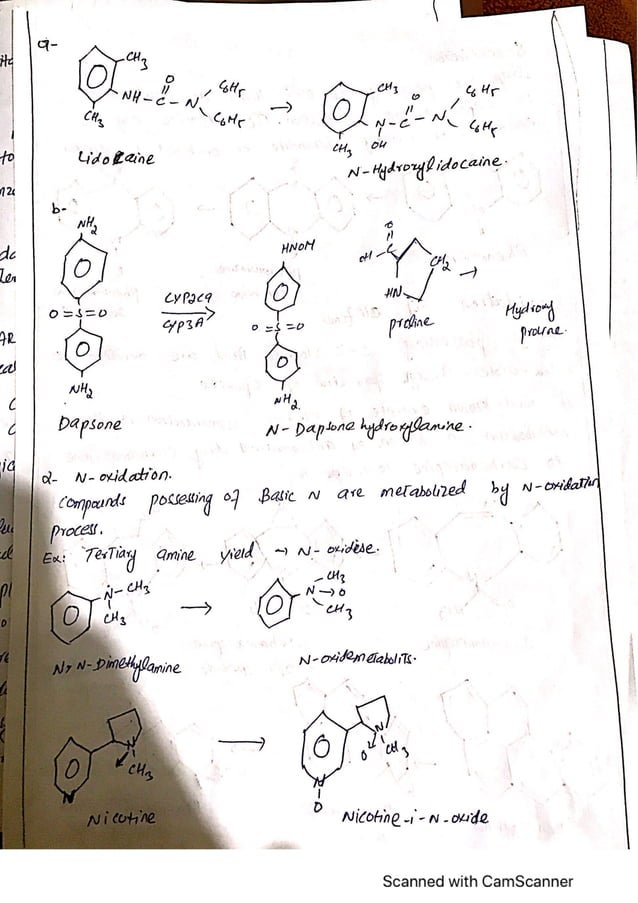 a-
CH3
O
NH-C-N
C6H5
C6H5
CH3
Lidocaine
→
CH3
O
N-C-N
C6H5
C6H5
CH3 OH
N-Hydroxylidocaine.
b-
NH2
O=S=O
NH2
Dapsone
CYP2C9
CYP3A
HNOH
O=S=O
NH2
N-Dapsone hydroxylamine.
O
OH-C
CH2
HN
proline
→
Hydroxy
proline.
2- N-oxidation.
Compounds possessing of Basic N are metabolized by N-oxidation
process.
Ex: Tertiary amine yield → N-oxidese.
N-CH3
CH3
→
CH3
N→O
CH3
N,N-Dimethylamine
N-oxidemetabolits.
N
CH3
N
Nicotine
→
N
O CH3
N
O
Nicotine-i-N-oxide
Scanned with CamScanner